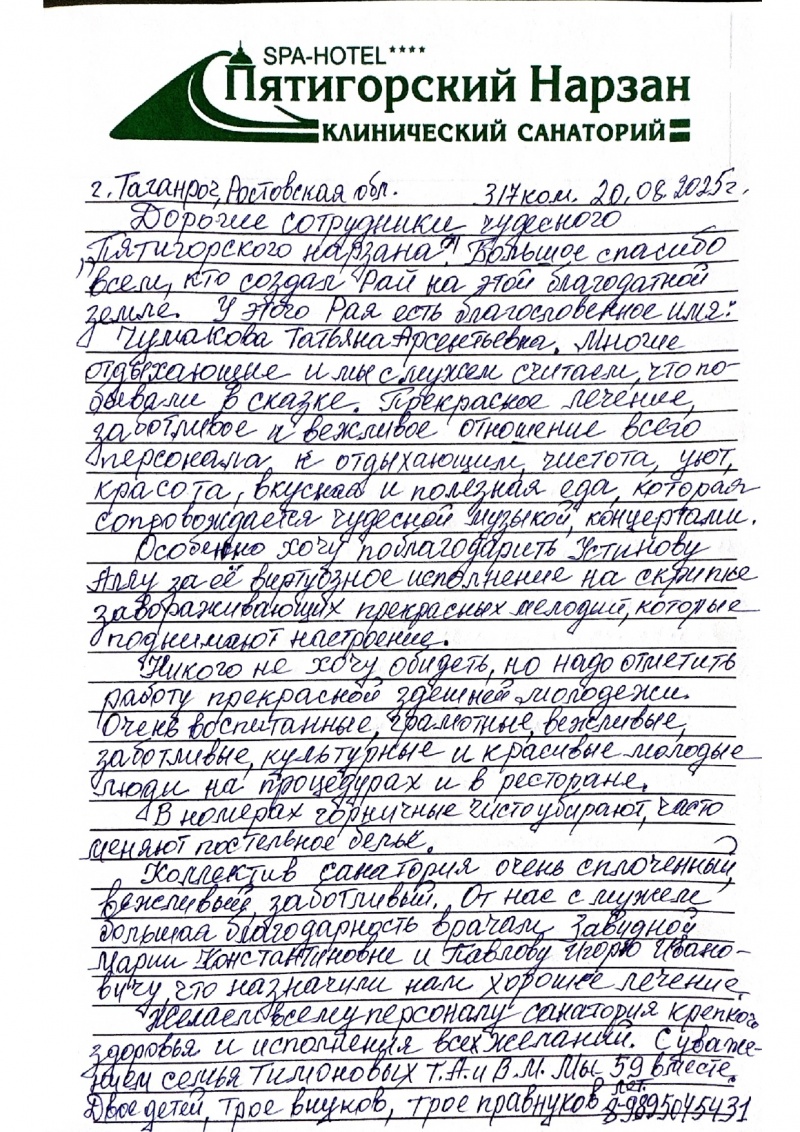 SPA-HOTEL****
Пятигорский Нарзан
КЛИНИЧЕСКИЙ САНАТОРИЙ
г. Таганрог, Ростовская обл. 317 ком. 20.08.2025г.
Дорогие сотрудники чудесного
"Пятигорского нарзана"! Большое спасибо
всем, кто создал Рай на этой благодатной
земле. У этого Рая есть благословенное имя:
Чумакова Татьяна Арсентьевна. Многие
отдыхающие и мы с мужем считаем, что по-
бывали в сказке. Прекрасное лечение,
заботливое и вежливое отношение всего
персонала к отдыхающим, чистота, уют,
красота, вкусная и полезная еда, которая
сопровождается чудесной музыкой, концертами.
Особенно хочу поблагодарить Устинову
Аллу за её виртуозное исполнение на скрипке
завораживающих прекрасных мелодий, которые
поднимают настроение.
Никого не хочу обидеть, но надо отметить
работу прекрасной здешней молодежи.
Очень воспитанные, грамотные, вежливые,
заботливые, культурные и красивые молодые
люди на процедурах и в ресторане.
В номерах горничные чисто убирают, часто
меняют постельное бельё.
Коллектив санатория очень сплоченный,
вежливый, заботливый. От нас с мужем
большая благодарность врачам Завудной
Марии Константиновне и Павлову Игорю Ивано-
вичу, что назначили нам хорошее лечение.
Желаем всему персоналу санатория крепкого
здоровья и исполнения всех желаний. С уваже-
нием семья Тимоновых Т.А. и В.М. Мы 59 лет вместе.
Двое детей, трое внуков, трое правнуков 8-9895045431